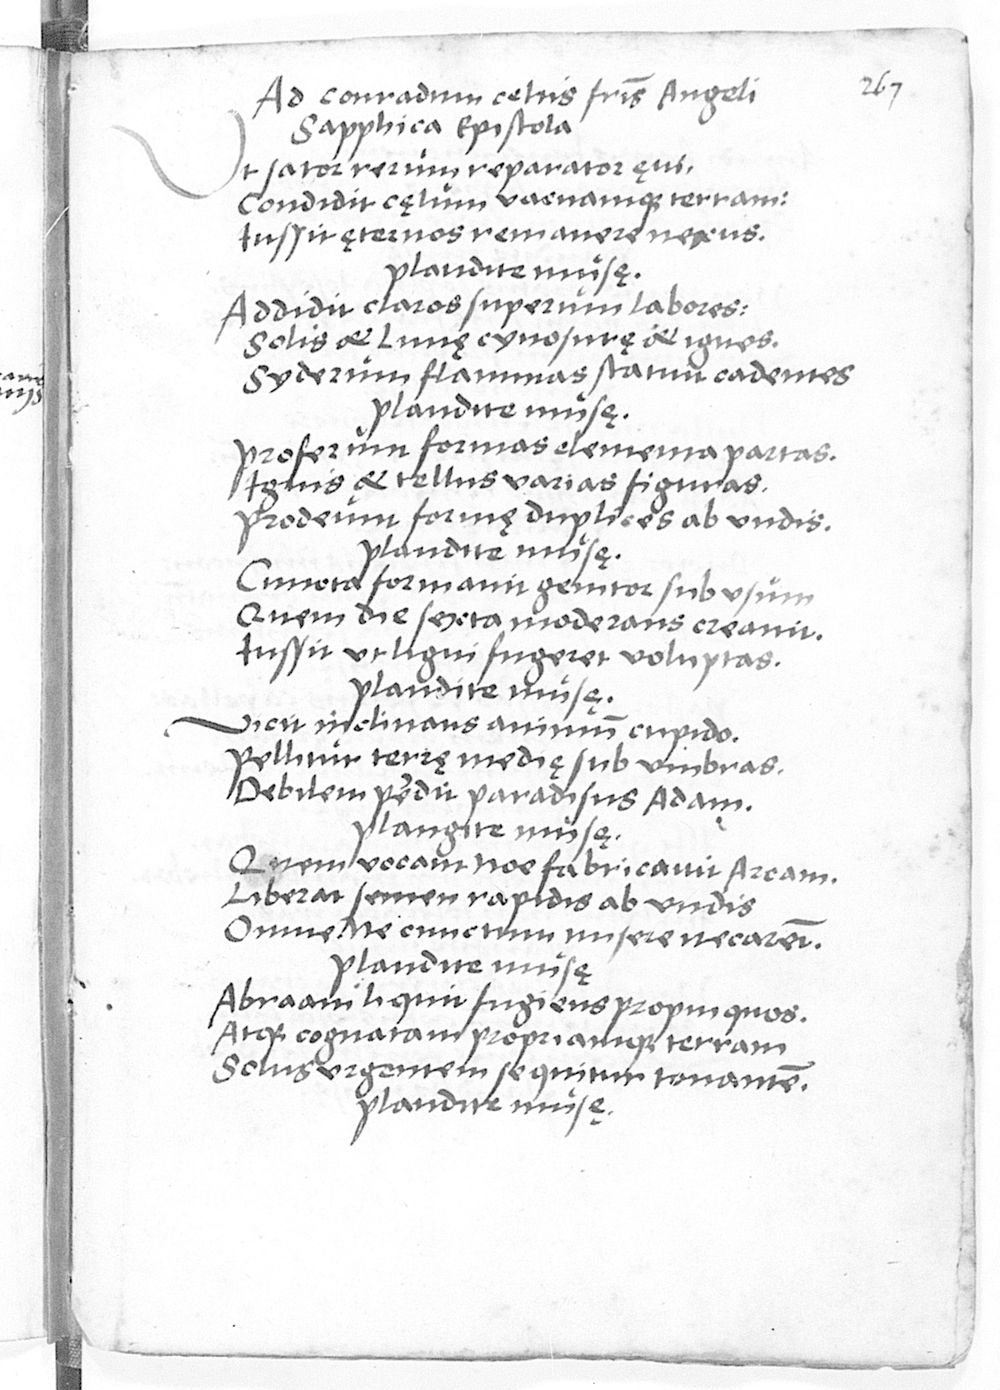 267
Ad conradum celtis fris̄ Angeli
Sapphica Epistola
Ut sator rerům reparator ęui.
Condidit cęlům vacuamqꝫ terram:
Iussit ęternos remanere nexus.
plaudite můsę.
Addidit claros superům labores:
Solis & Lunę cynosurę & ignes.
Syderům flammas statuit cadentes
plaudite můsę.
Proferům formas elementa partas.
Ignis & tellus varias figuras.
Prodeům formę duplices ab vndis.
plaudite můsę.
Cuncta formauit genitor sub vsům
Quem die sexta moderans creauit.
Iussit vt ligni fugeret voluptas.
plaudite můsę.
Vicit inclinans animū cupido.
Pellitůr terrę medię sub vmbras.
Debilem pe̊dit paradisus Adam.
plangite můsę.
Quem vocant Noe fabricauit Arcam.
Liberat semen rapidis ab vndis
Omne Ne cunctum misere necareт̄.
plaudite můsę
Abraam liquit fugiens propinquos.
Atqꝫ cognatam propriamqꝫ terram
Solus vrgentem sequitur tonantē.
plaudite můsę.